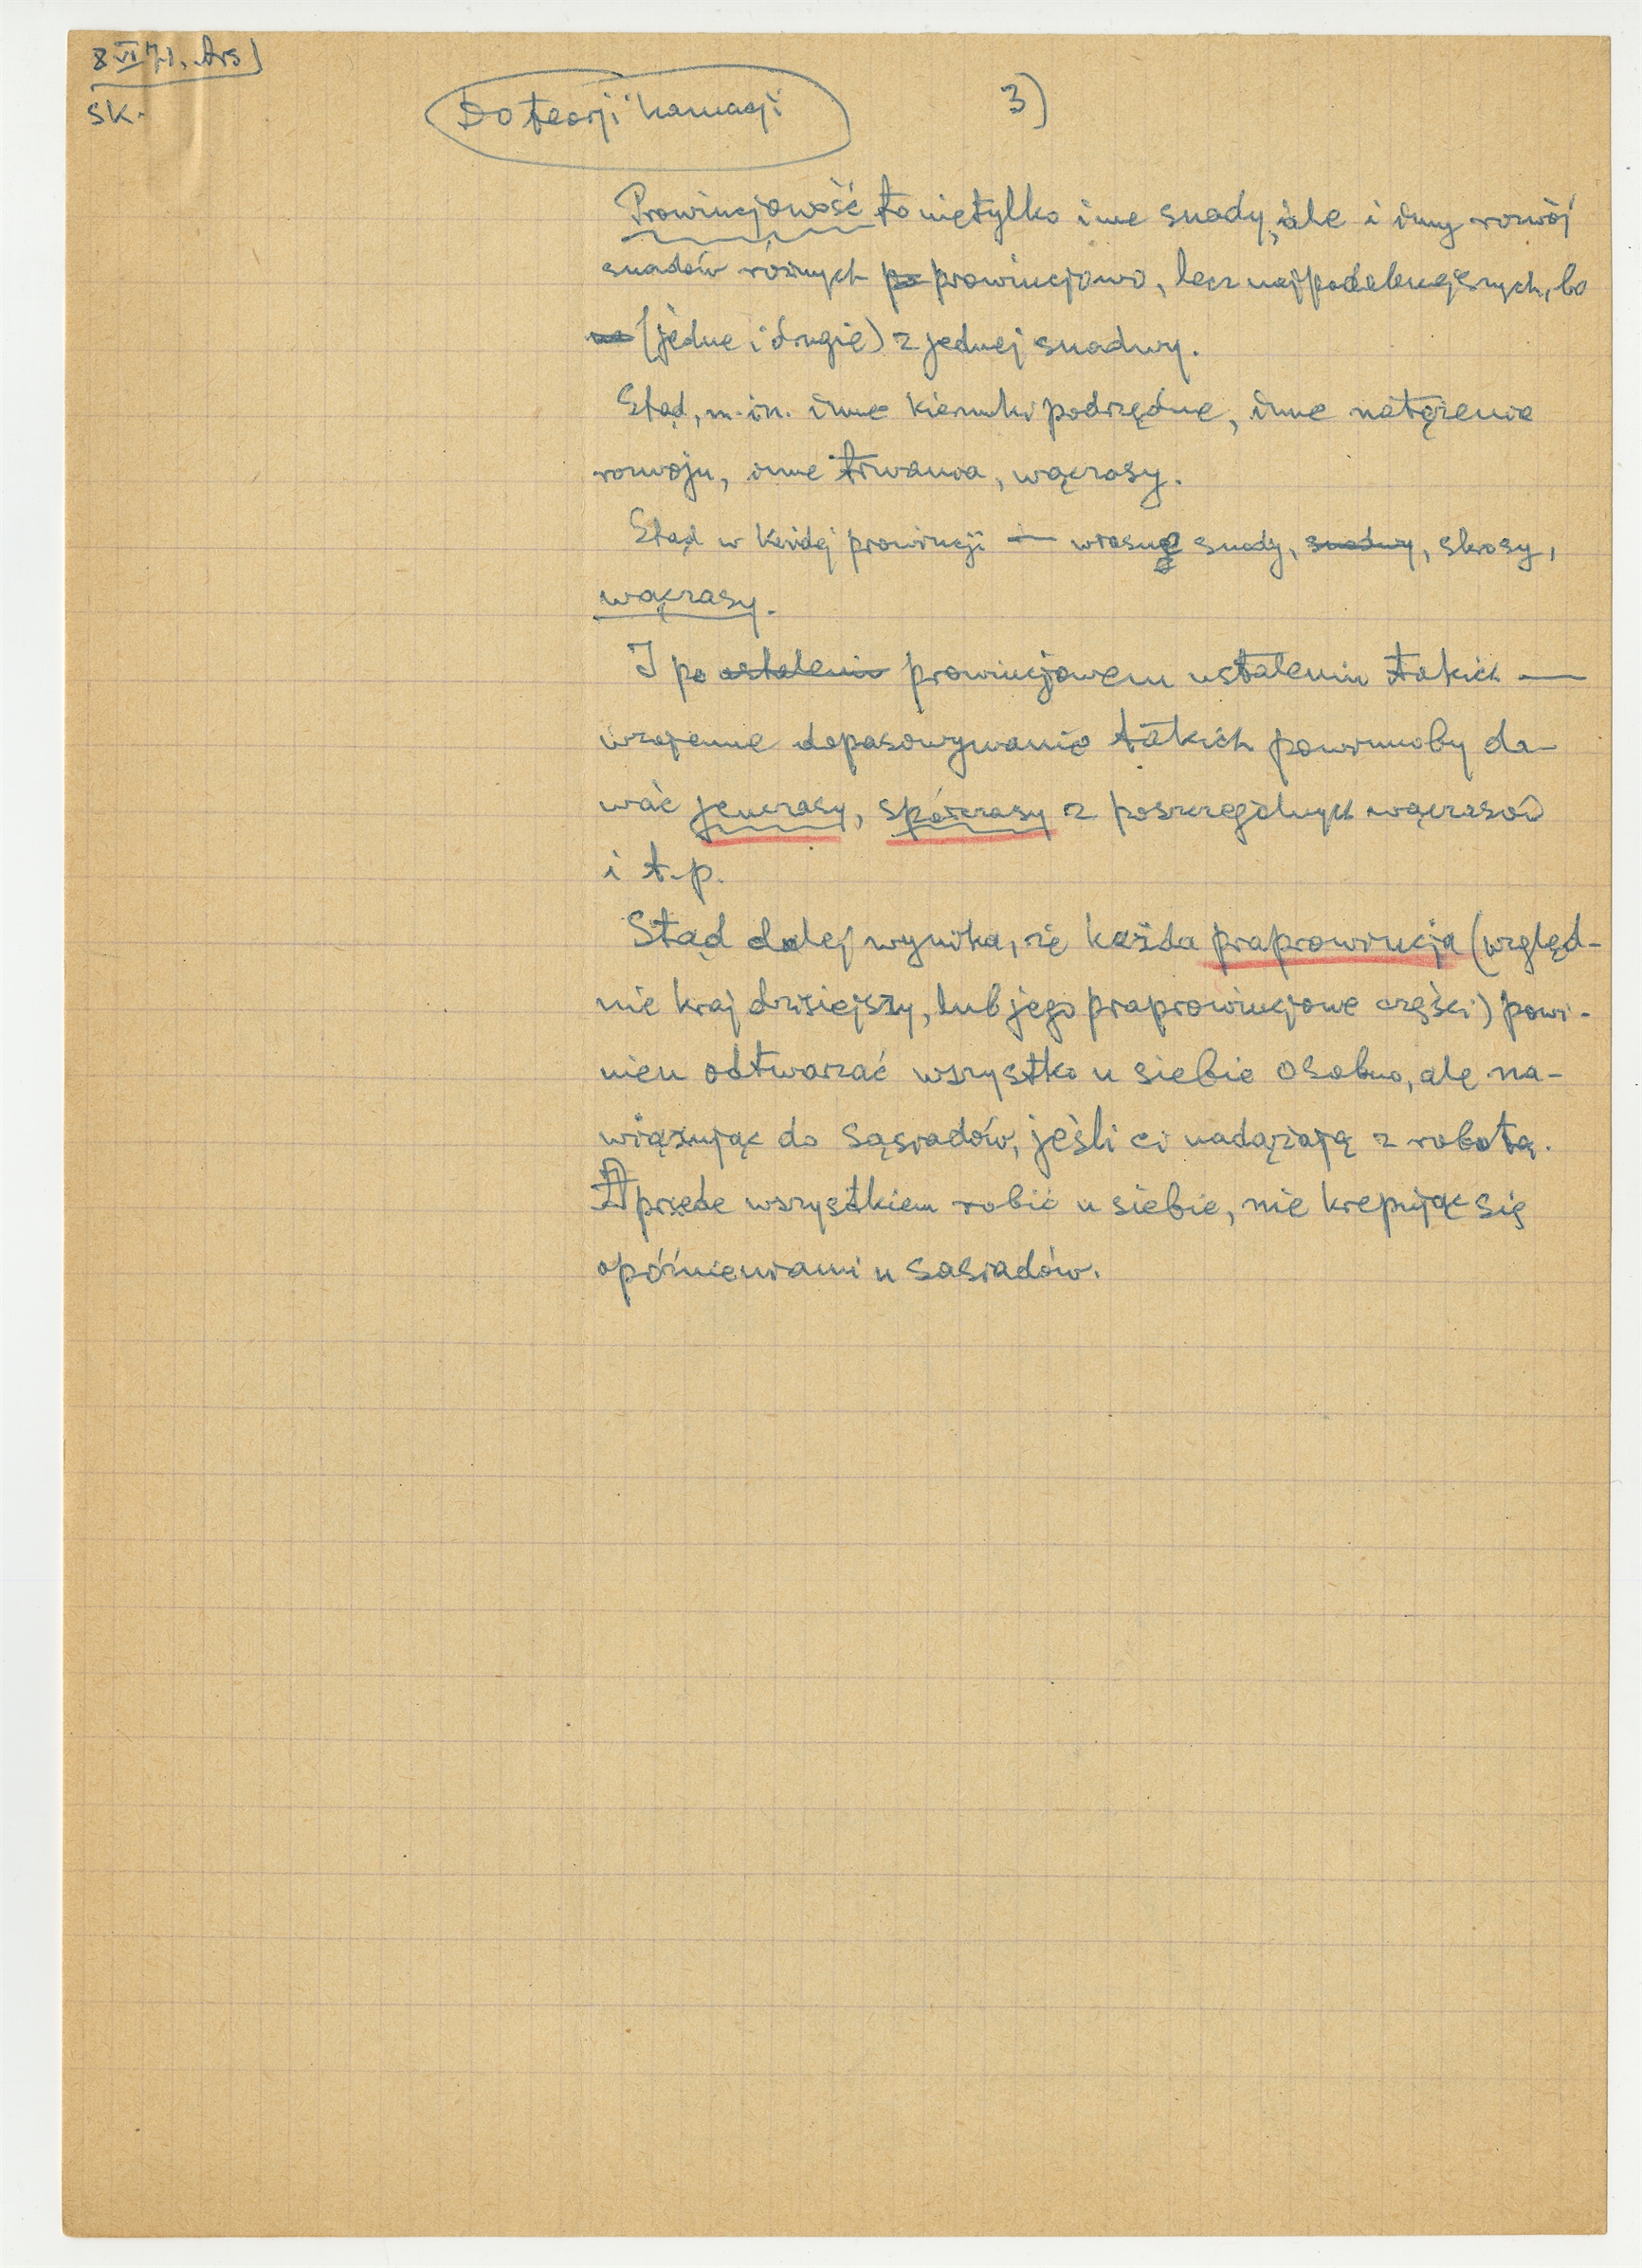 8 VI 71. Ars)
SK.
Do teorji hamacji
3)
Prowincjowość to nietylko inne snady, ale i inny rozwój
snadów różnych po prowincjowo, lecz najpodobniejszych, bo
(jedne i drugie) z jednej snadwy.
Stąd, m.in. inne kierunki podrzędne, inne natężenia
rozwoju, inne trwania, wączasy.
Stąd w każdej prowincji — własne snady, snadwy, skrosy,
wączasy.
I po ustaleniu prowincjowem ustaleniu takich —
wzajemne dopasowywanie takich powinnoby da-
wać jenczasy, spółczasy z poszczególnych wączasów
i t.p.
Stąd dalej wynika, że każda praprowincja (względ-
nie kraj dzisiejszy, lub jego praprowincjowe części) powi-
nien odtwarzać wszystko u siebie osobno, ale na-
wiązując do sąsiadów, jeśli ci nadążają z robotą.
A przede wszystkiem robić u siebie, nie krępując się
opóźnieniami u sąsiadów.